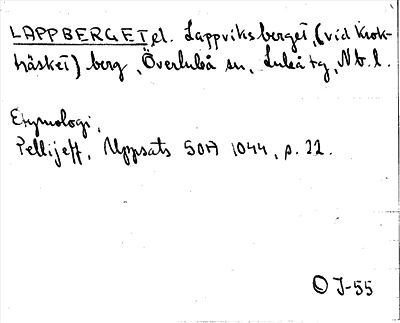 LAPPBERGET, el. Lappviksberget, (vid Krok-
träsket) berg, Överluleå sn, Luleå tg, Nb. l.
Etymologi,
Pellijeff, Uppsats SOA 1044, p. 22.
O J-55